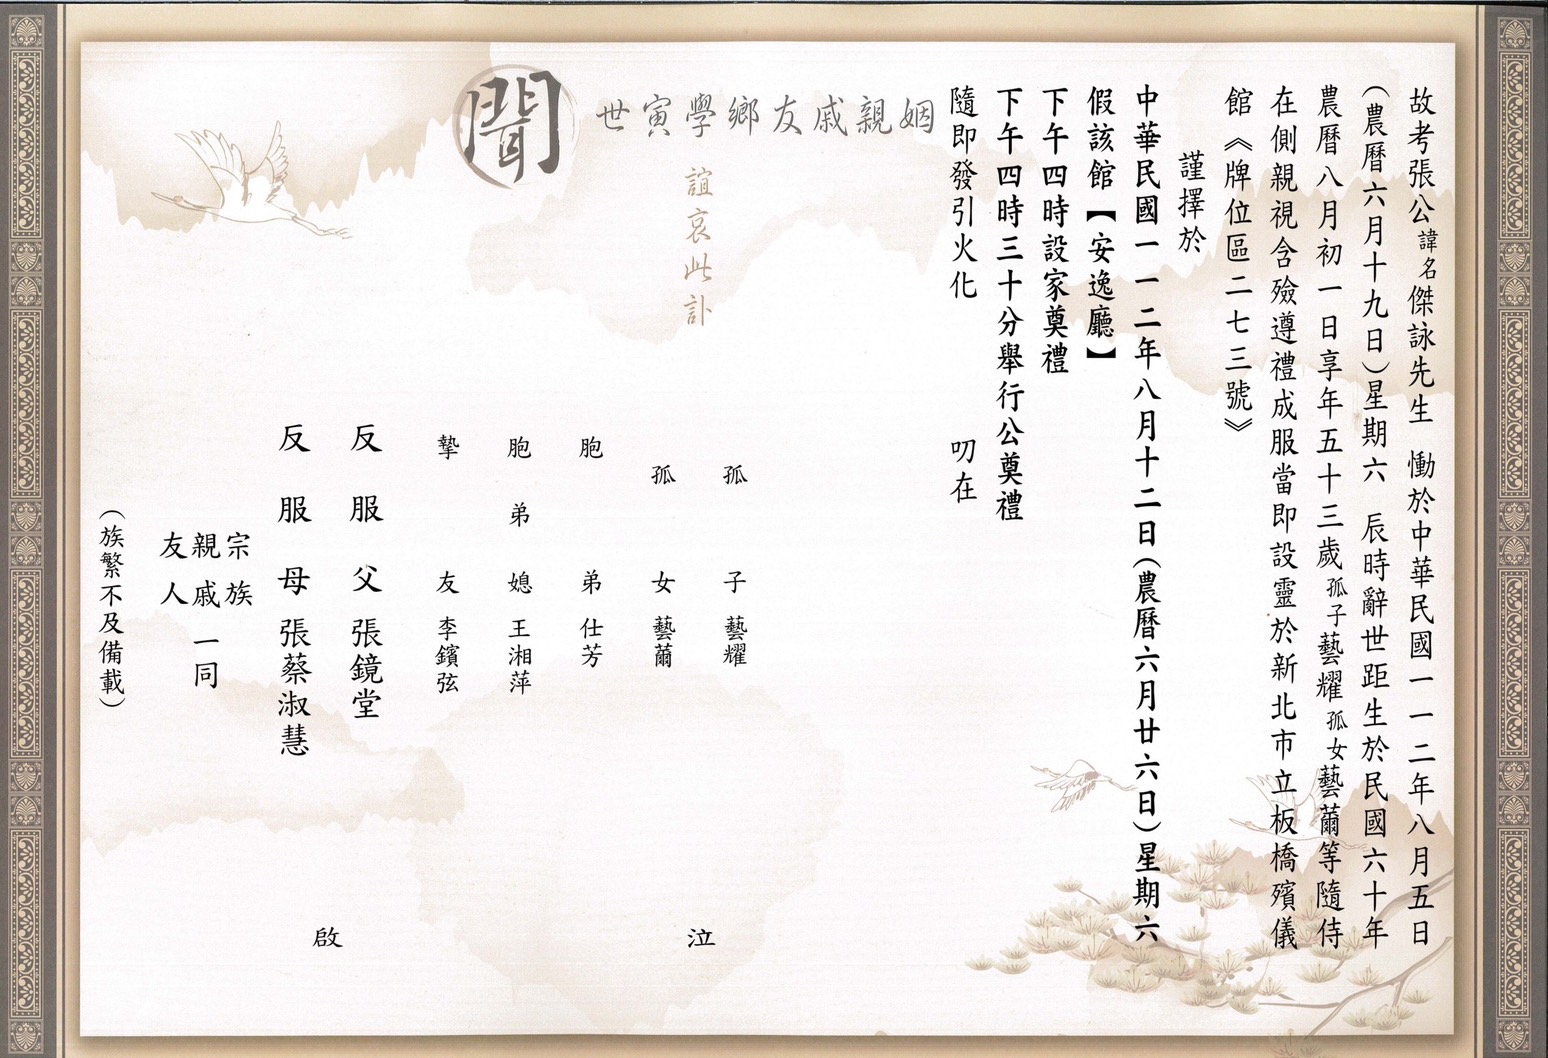 故考張公諱名傑詠先生 慟於中華民國一一二年八月五日
(農曆六月十九日)星期六 辰時辭世距生於民國六十年
農曆八月初一日享年五十三歲孤子藝耀孤女藝薾等隨侍
在側親視含殮遵禮成服當即設靈於新北市立板橋殯儀
館《牌位區二七三號》
謹擇於
中華民國一一二年八月十二日(農曆六月廿六日)星期六
假該館【安逸廳】
下午四時設家奠禮
下午四時三十分舉行公奠禮
隨即發引火化 叨在
姻親戚友鄉學寅世
誼哀此訃
聞
孤子 藝耀
孤女 藝薾
胞弟 仕芳
胞弟媳 王湘萍
摯友 李鑌弦
泣
反服父 張鏡堂
反服母 張蔡淑慧
啟
宗族
親戚一同
友人
(族繁不及備載)